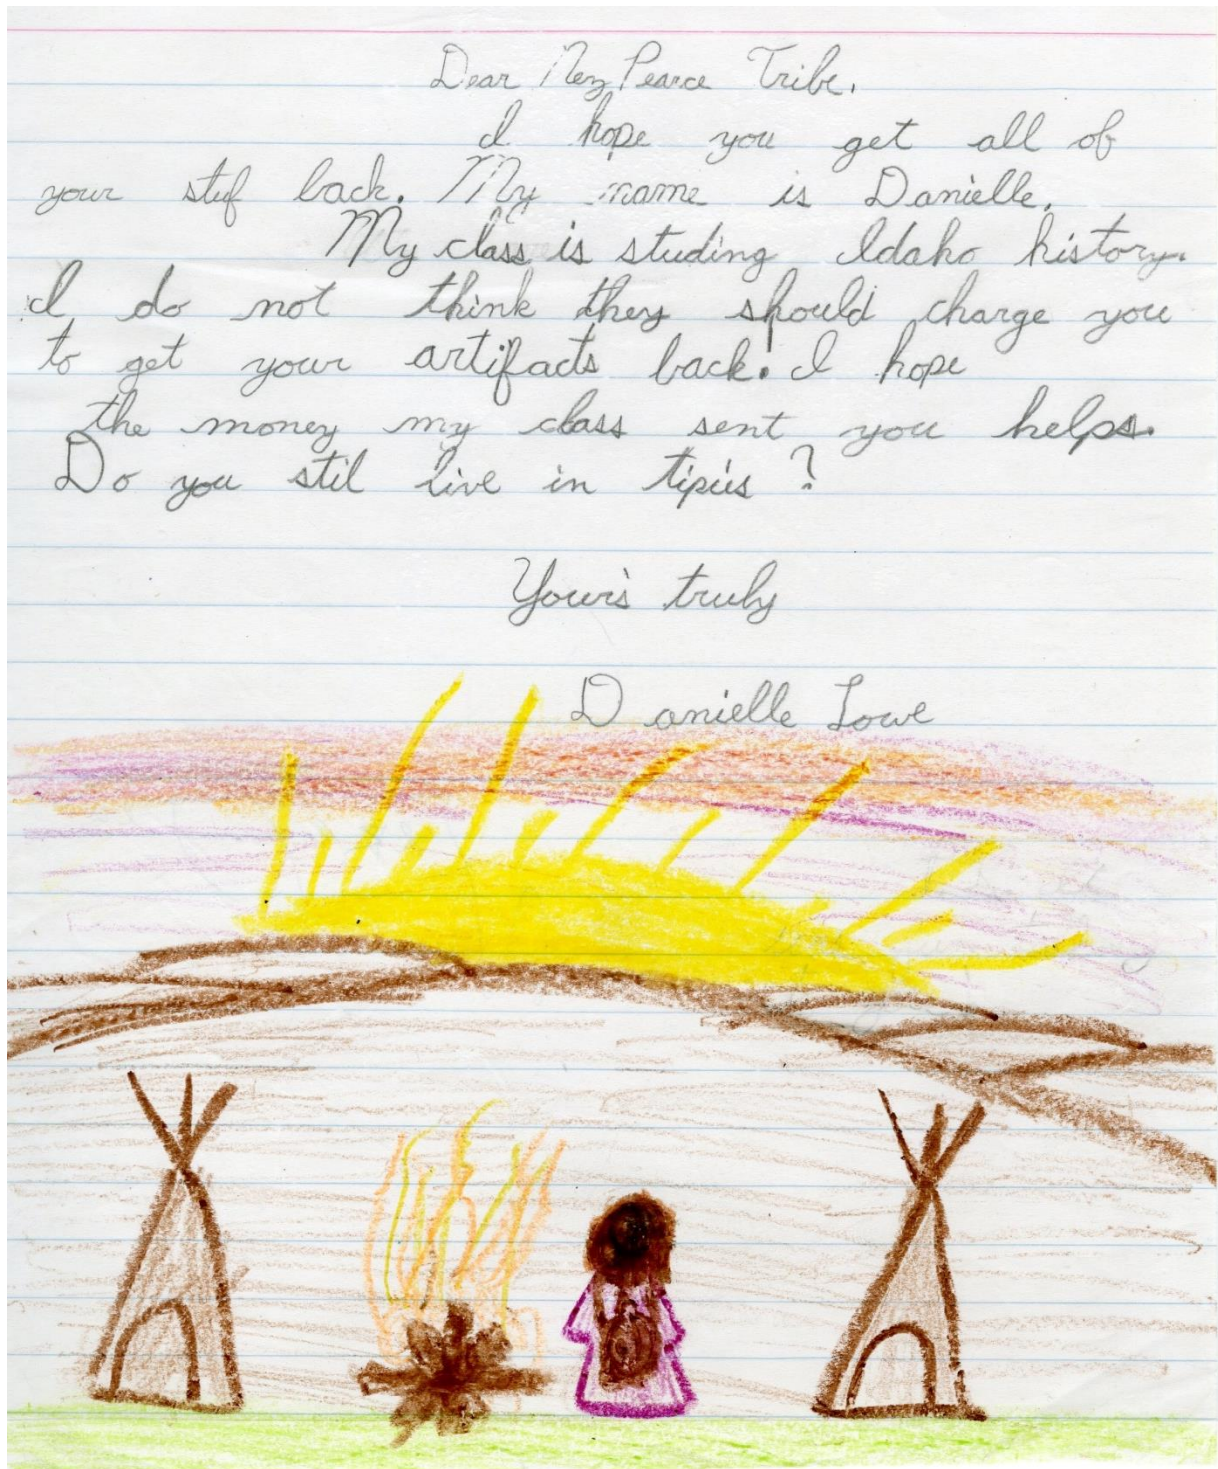 Dear Nez Pearce Tribe,
I hope you get all of
your stuf back. My name is Danielle.
My class is studing Idaho history.
I do not think they should charge you
to get your artifacts back. I hope
the money my class sent you helps.
Do you stil live in tipiis ?
Your's truly
Danielle Lowe